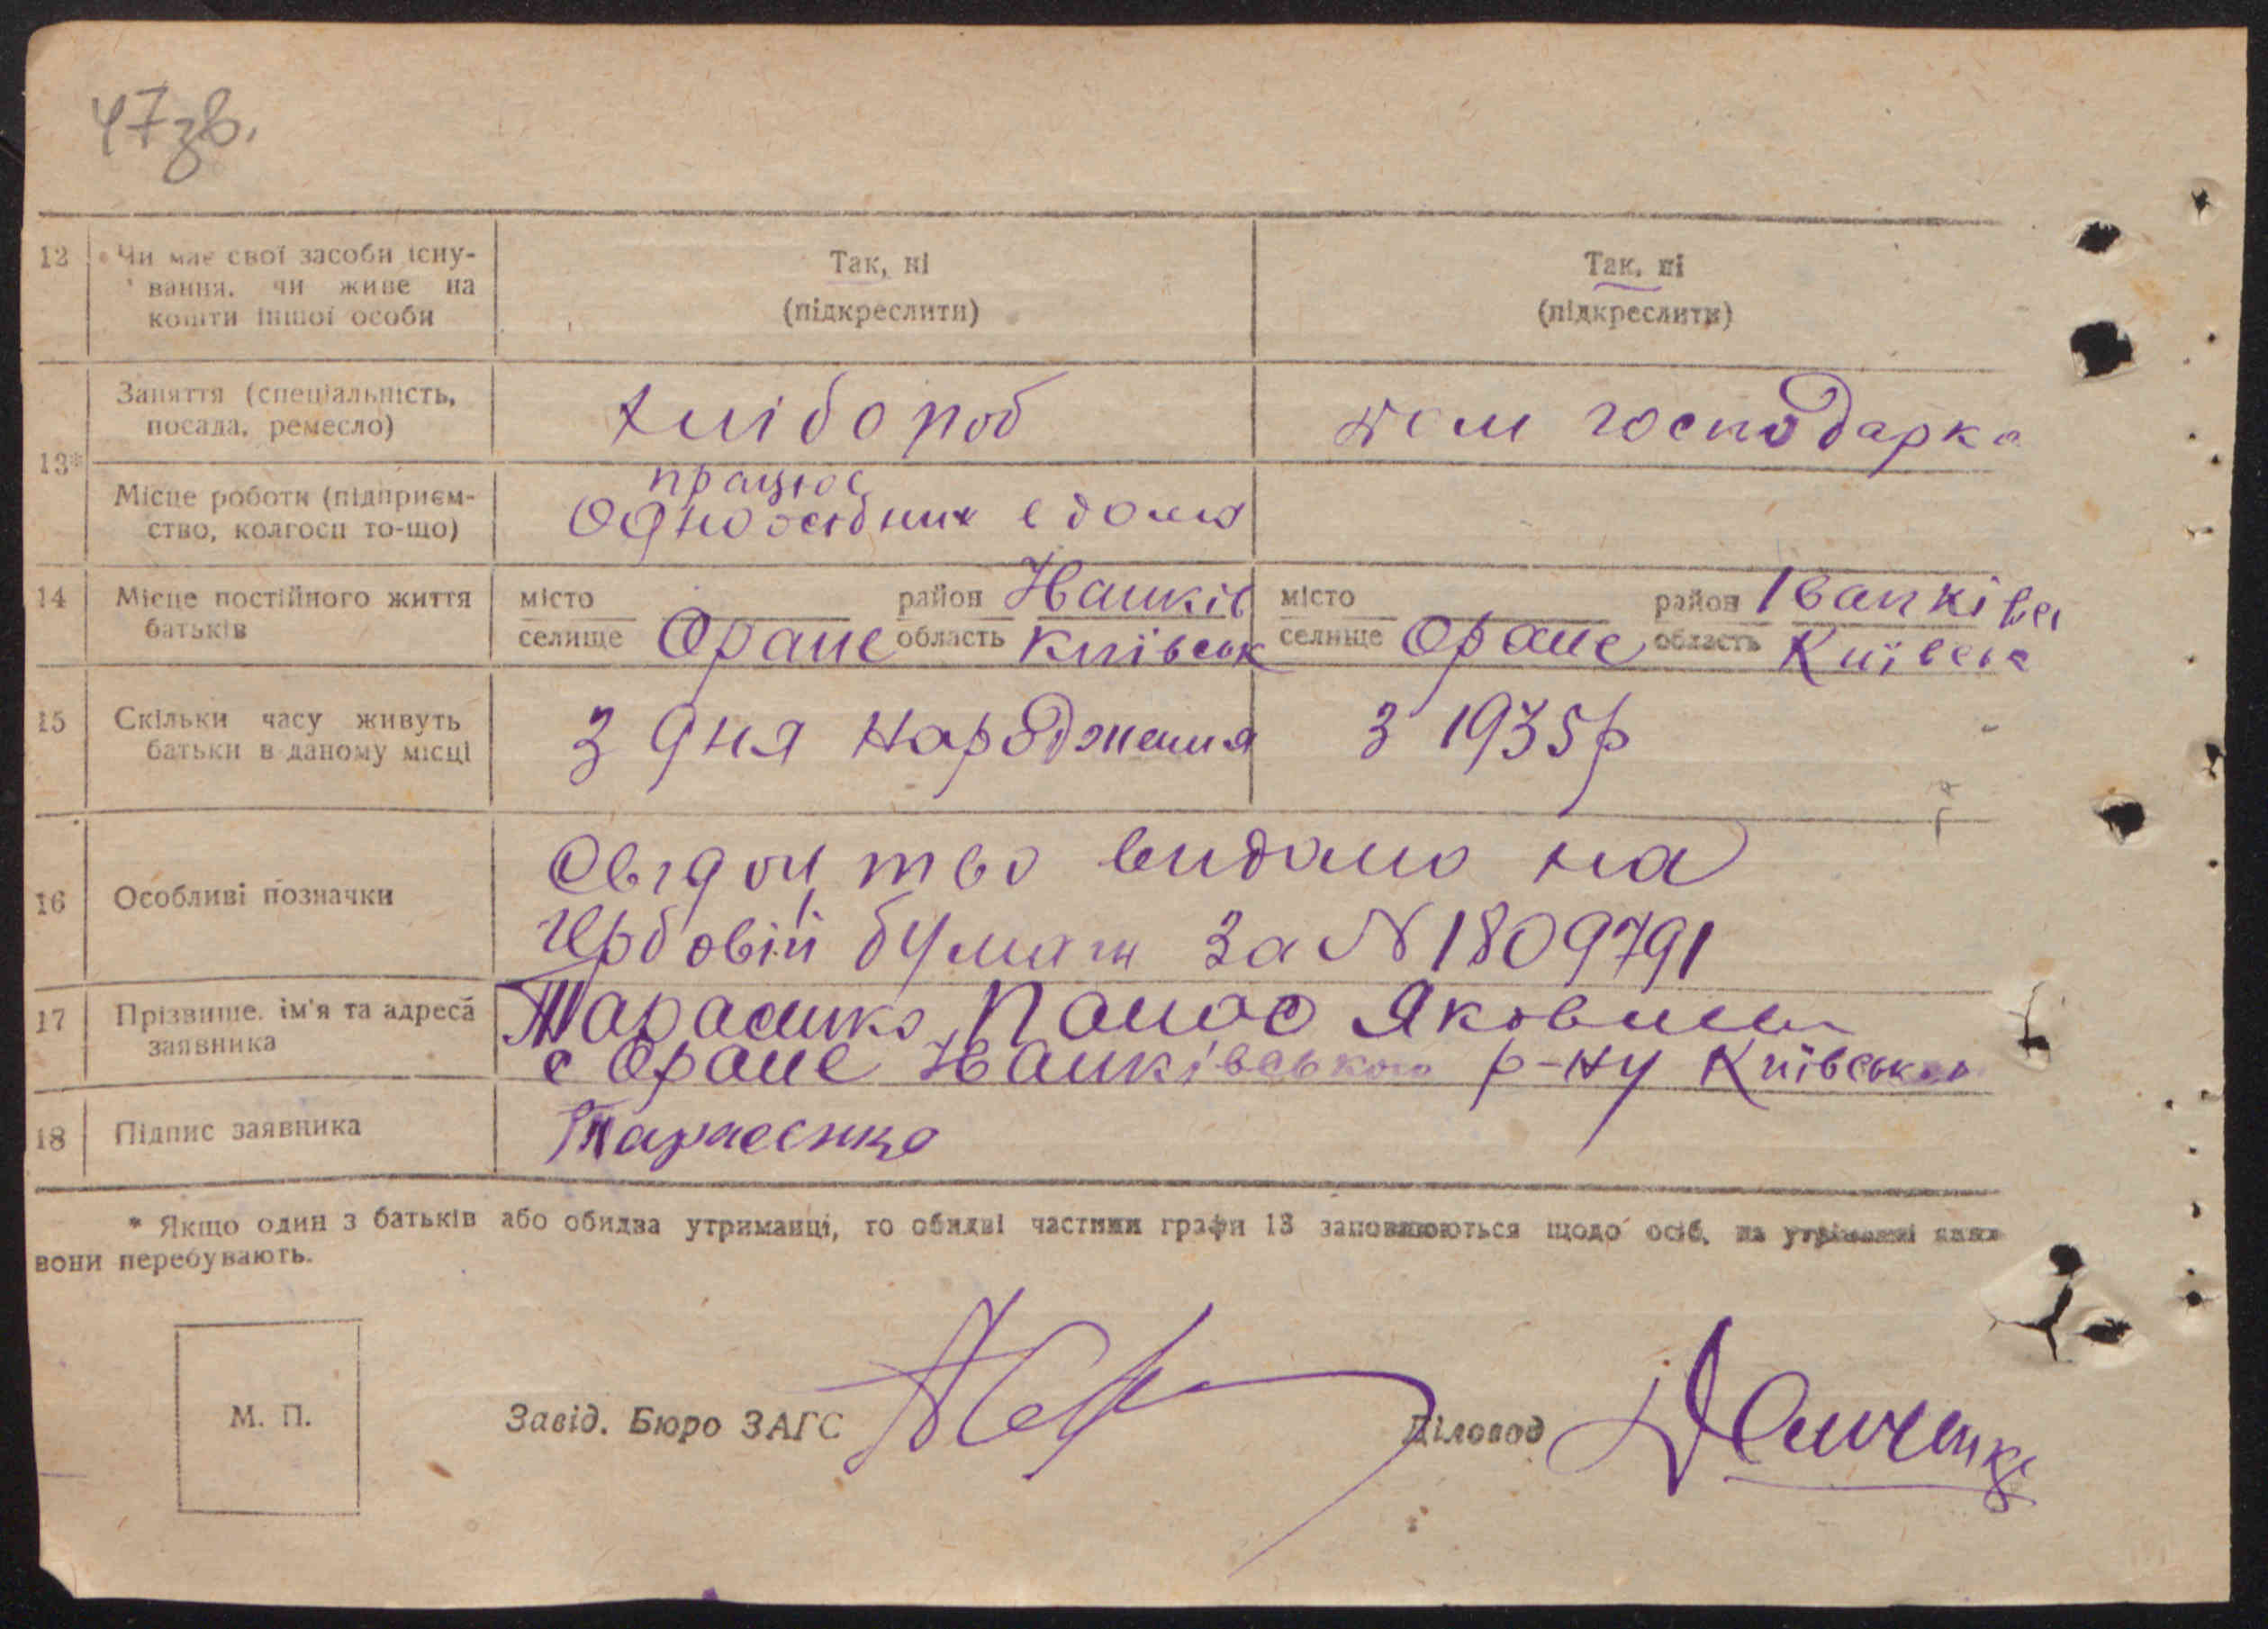 47зв.
12 Чи має свої засоби існу-
вання, чи живе на
кошти іншої особи
Так, ні
(підкреслити)
Так, ні
(підкреслити)
13*
Заняття (спеціальність,
посада, ремесло)
хлібороб
дом господарка
Місце роботи (підприєм-
ство, колгосп то-що)
працює
Одноосібник
14 Місце постійного життя
батьків
місто
селище Оране
район Іванків
область Київськ
місто
селище Оране
район Іванківсь
область Київськ
15 Скільки часу живуть
батьки в даному місці
З дня народження
З 1935р
16 Особливі позначки
Свідоцтво видано на
гербовій бумаги за № 1809791
17 Прізвище, ім'я та адреса
заявника
Тарасенко Панас Якович
с Оране Іванківського р-ну Київсько
18 Підпис заявника
Тарасенко
* Якщо один з батьків або обидва утриманці, то обидві частини графи 13 заповнюються щодо осіб, на утриманні яких
вони перебувають.
М. П.
Завід. Бюро ЗАГС
Діловод